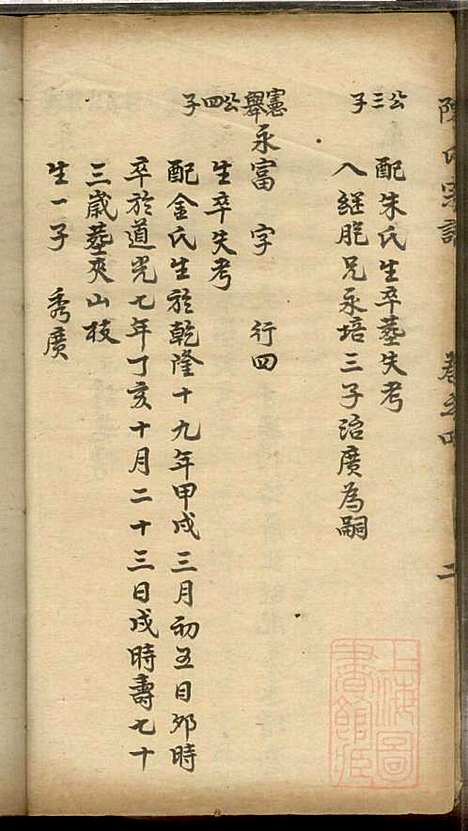 陳氏宗譜 卷之四 二
公三子
配朱氏生卒塟失考
入継胞兄永培三子治廣為嗣
憲舉公四子
永富 字 行四
生卒失考
配金氏生於乾隆十九年甲戌三月初五日卯時
卒於道光七年丁亥十月二十三日戌時壽七十
三歲塟夾山枝
生一子 秀廣
上海圖書館藏